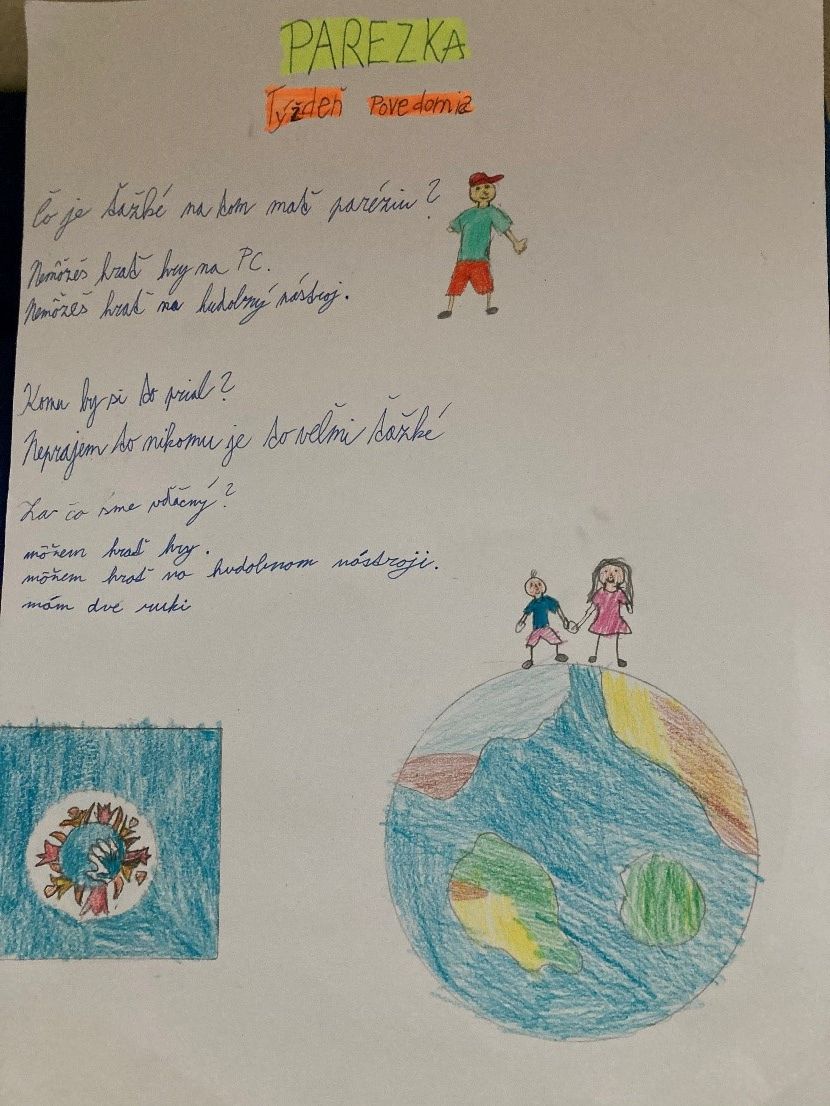 PAREZKA
Týždeň Povedomia
Čo je ťažké na tom mať paréziu?
Nemôžeš hrať hry na PC.
Nemôžeš hrať na hudobný nástroj.
Komu by si to prial?
Neprajem to nikomu je to veľmi ťažké
Za čo sme vďačný?
môžem hrať hry.
môžem hrať na hudobnom nástroji.
mám dve ruki